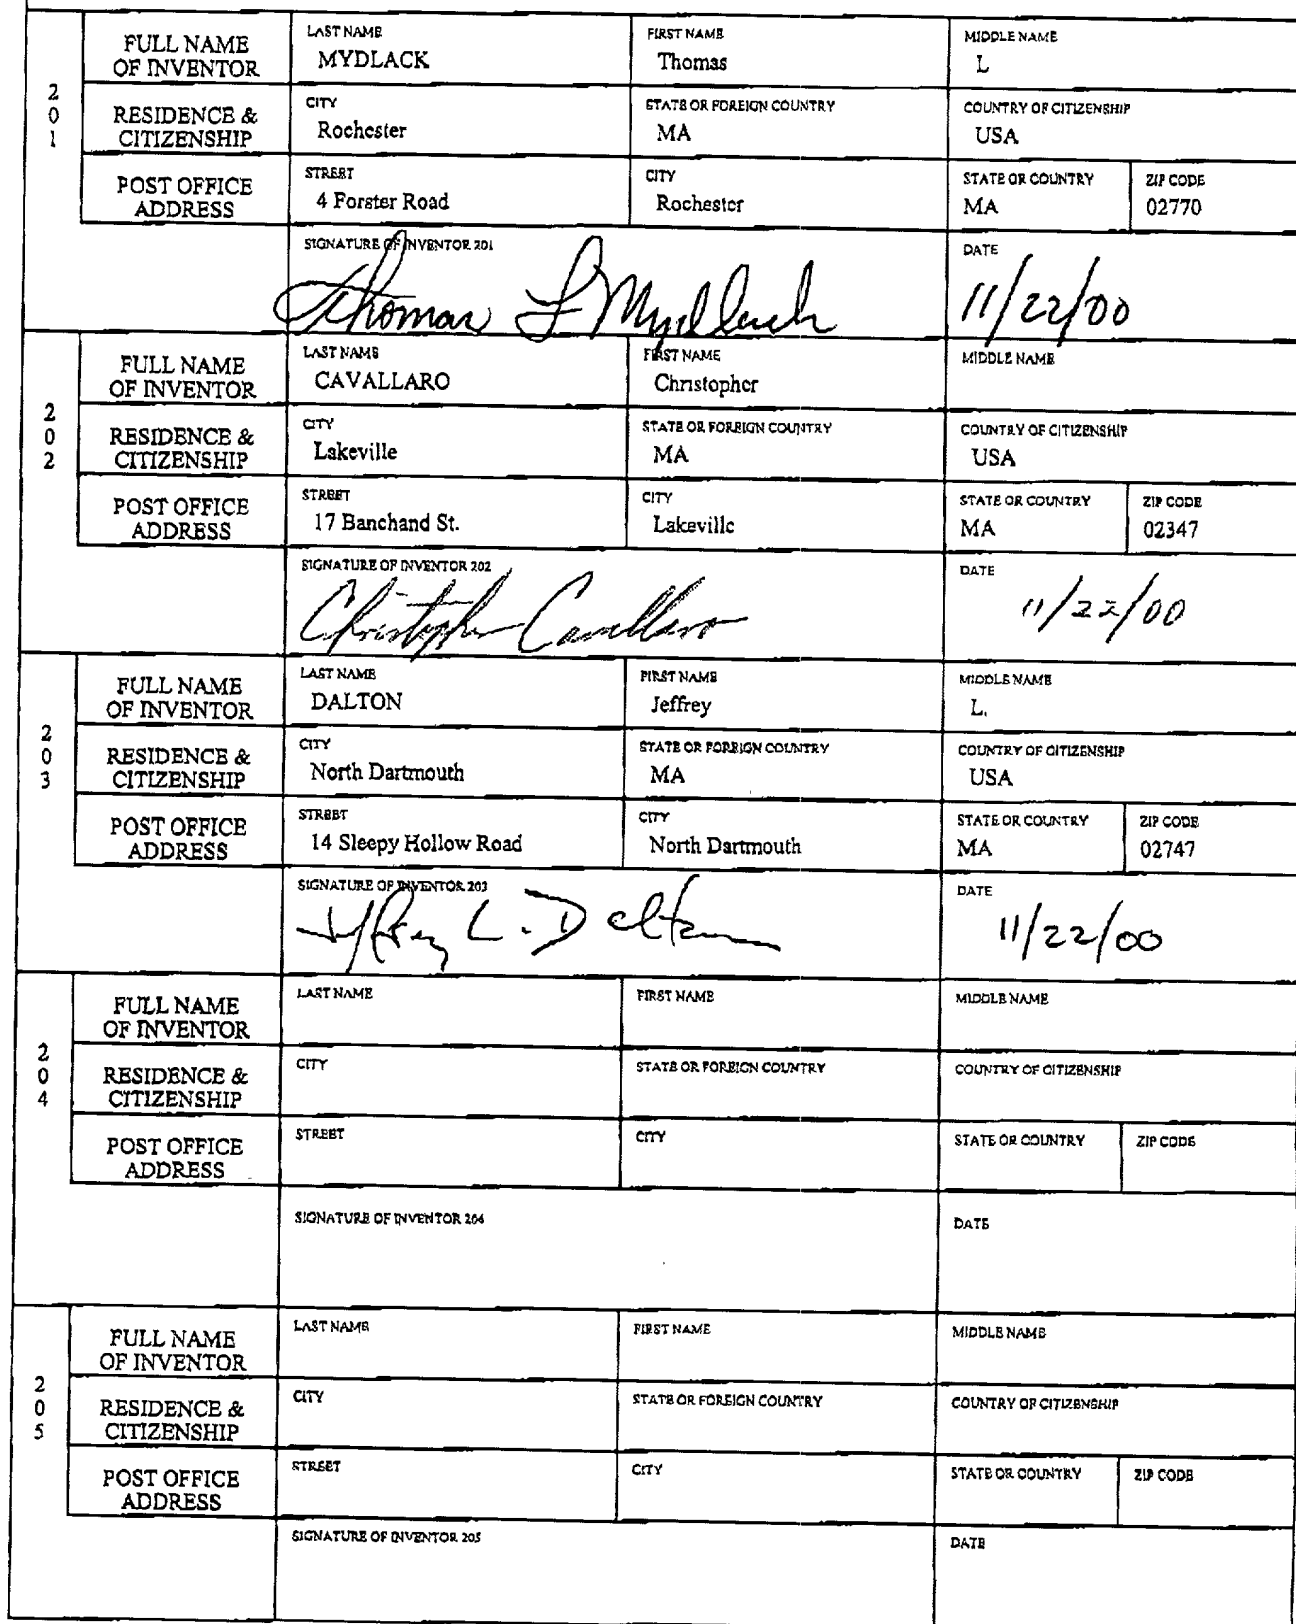 201
FULL NAME OF INVENTOR
LAST NAME MYDLACK
FIRST NAME Thomas
MIDDLE NAME L
RESIDENCE & CITIZENSHIP
CITY Rochester
STATE OR FOREIGN COUNTRY MA
COUNTRY OF CITIZENSHIP USA
POST OFFICE ADDRESS
STREET 4 Forster Road
CITY Rochester
STATE OR COUNTRY MA
ZIP CODE 02770
SIGNATURE OF INVENTOR 201 Thomas L Mydlack
DATE 11/22/00
202
FULL NAME OF INVENTOR
LAST NAME CAVALLARO
FIRST NAME Christopher
MIDDLE NAME
RESIDENCE & CITIZENSHIP
CITY Lakeville
STATE OR FOREIGN COUNTRY MA
COUNTRY OF CITIZENSHIP USA
POST OFFICE ADDRESS
STREET 17 Banchand St.
CITY Lakeville
STATE OR COUNTRY MA
ZIP CODE 02347
SIGNATURE OF INVENTOR 202 Christopher Cavallaro
DATE 11/22/00
203
FULL NAME OF INVENTOR
LAST NAME DALTON
FIRST NAME Jeffrey
MIDDLE NAME L.
RESIDENCE & CITIZENSHIP
CITY North Dartmouth
STATE OR FOREIGN COUNTRY MA
COUNTRY OF CITIZENSHIP USA
POST OFFICE ADDRESS
STREET 14 Sleepy Hollow Road
CITY North Dartmouth
STATE OR COUNTRY MA
ZIP CODE 02747
SIGNATURE OF INVENTOR 203 Jeffrey L. Dalton
DATE 11/22/00
204
FULL NAME OF INVENTOR
LAST NAME
FIRST NAME
MIDDLE NAME
RESIDENCE & CITIZENSHIP
CITY
STATE OR FOREIGN COUNTRY
COUNTRY OF CITIZENSHIP
POST OFFICE ADDRESS
STREET
CITY
STATE OR COUNTRY
ZIP CODE
SIGNATURE OF INVENTOR 204
DATE
205
FULL NAME OF INVENTOR
LAST NAME
FIRST NAME
MIDDLE NAME
RESIDENCE & CITIZENSHIP
CITY
STATE OR FOREIGN COUNTRY
COUNTRY OF CITIZENSHIP
POST OFFICE ADDRESS
STREET
CITY
STATE OR COUNTRY
ZIP CODE
SIGNATURE OF INVENTOR 205
DATE